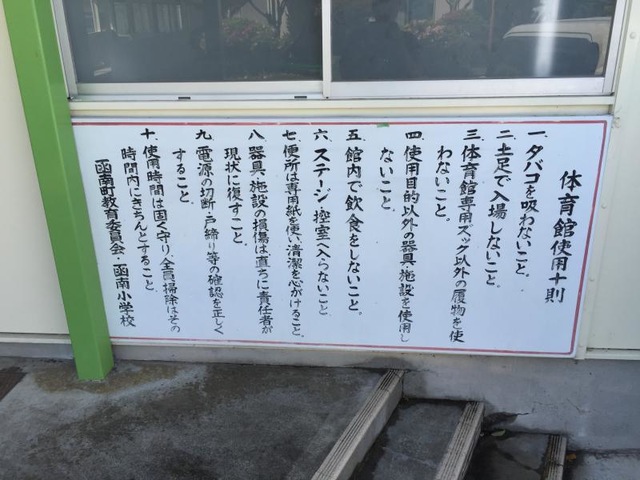 体育館使用十則
一、タバコを吸わないこと。
二、土足で入場しないこと。
三、体育館専用ズック以外の履物を使
わないこと。
四、使用目的以外の器具、施設を使用し
ないこと。
五、館内で飲食をしないこと。
六、ステージ、控室へ入らないこと
七、便所は専用紙を使い清潔を心がけること。
八、器具、施設の損傷は直ちに責任者が
現状に復すこと。
九、電源の切断・戸締り等の確認を正しく
すること。
十、使用時間は固く守り、全員掃除はその
時間内にきちんとすること。
函南町教育委員会・函南小学校